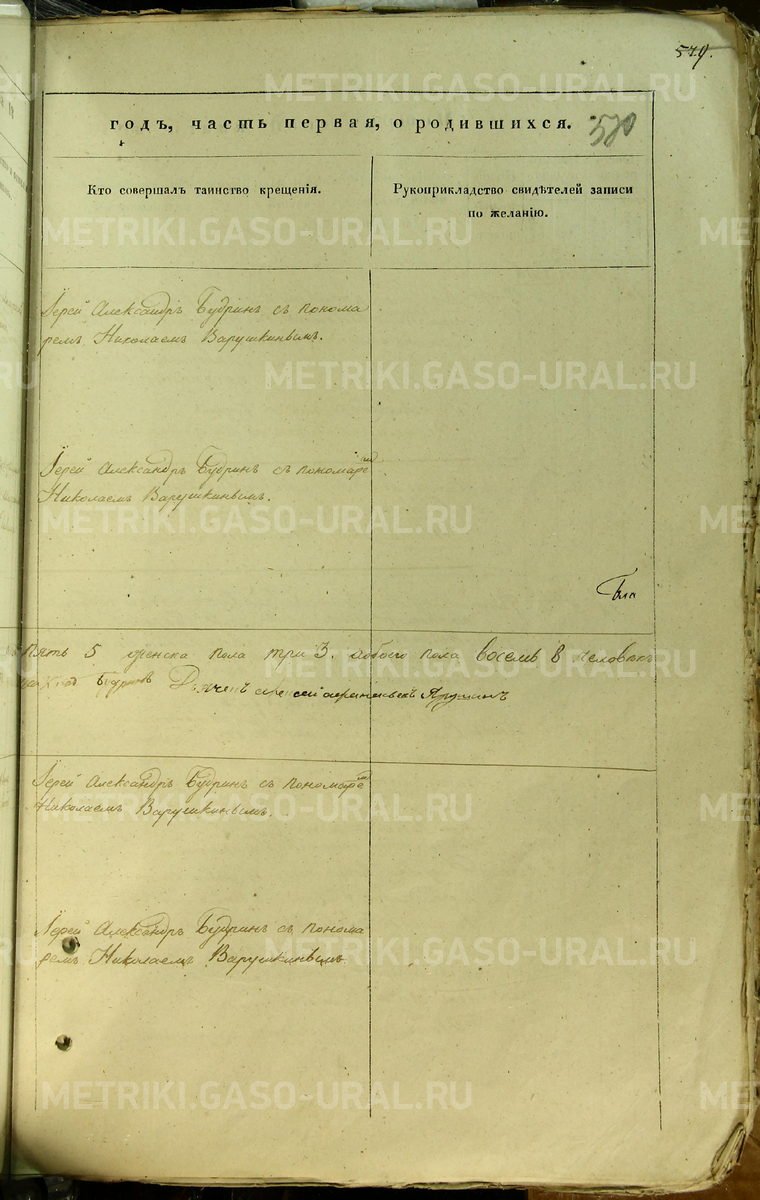 579.
580
годъ, часть первая, о родившихся.
Кто совершалъ таинство крещенія.
Рукоприкладство свидѣтелей записи
по желанію.
Іерей Александръ Будринъ съ понома
ремъ Николаемъ Варушкинымъ.
Іерей Александръ Будринъ съ пономаремъ
Николаемъ Варушкинымъ.
пять 5 женска пола три 3. обоего пола восемь 8 человѣкъ
Будринъ Дьячекъ
Іерей Александръ Будринъ съ пономаремъ
Николаемъ Варушкинымъ.
Іерей Александръ Будринъ съ понома
ремъ Николаемъ Варушкинымъ
METRIKI.GASO-URAL.RU
METRIKI.GASO-URAL.RU
METRIKI.GASO-URAL.RU
METRIKI.GASO-URAL.RU
METRIKI.GASO-URAL.RU
METRIKI.GASO-URAL.RU
METRIKI.GASO-URAL.RU
METRIKI.GASO-URAL.RU